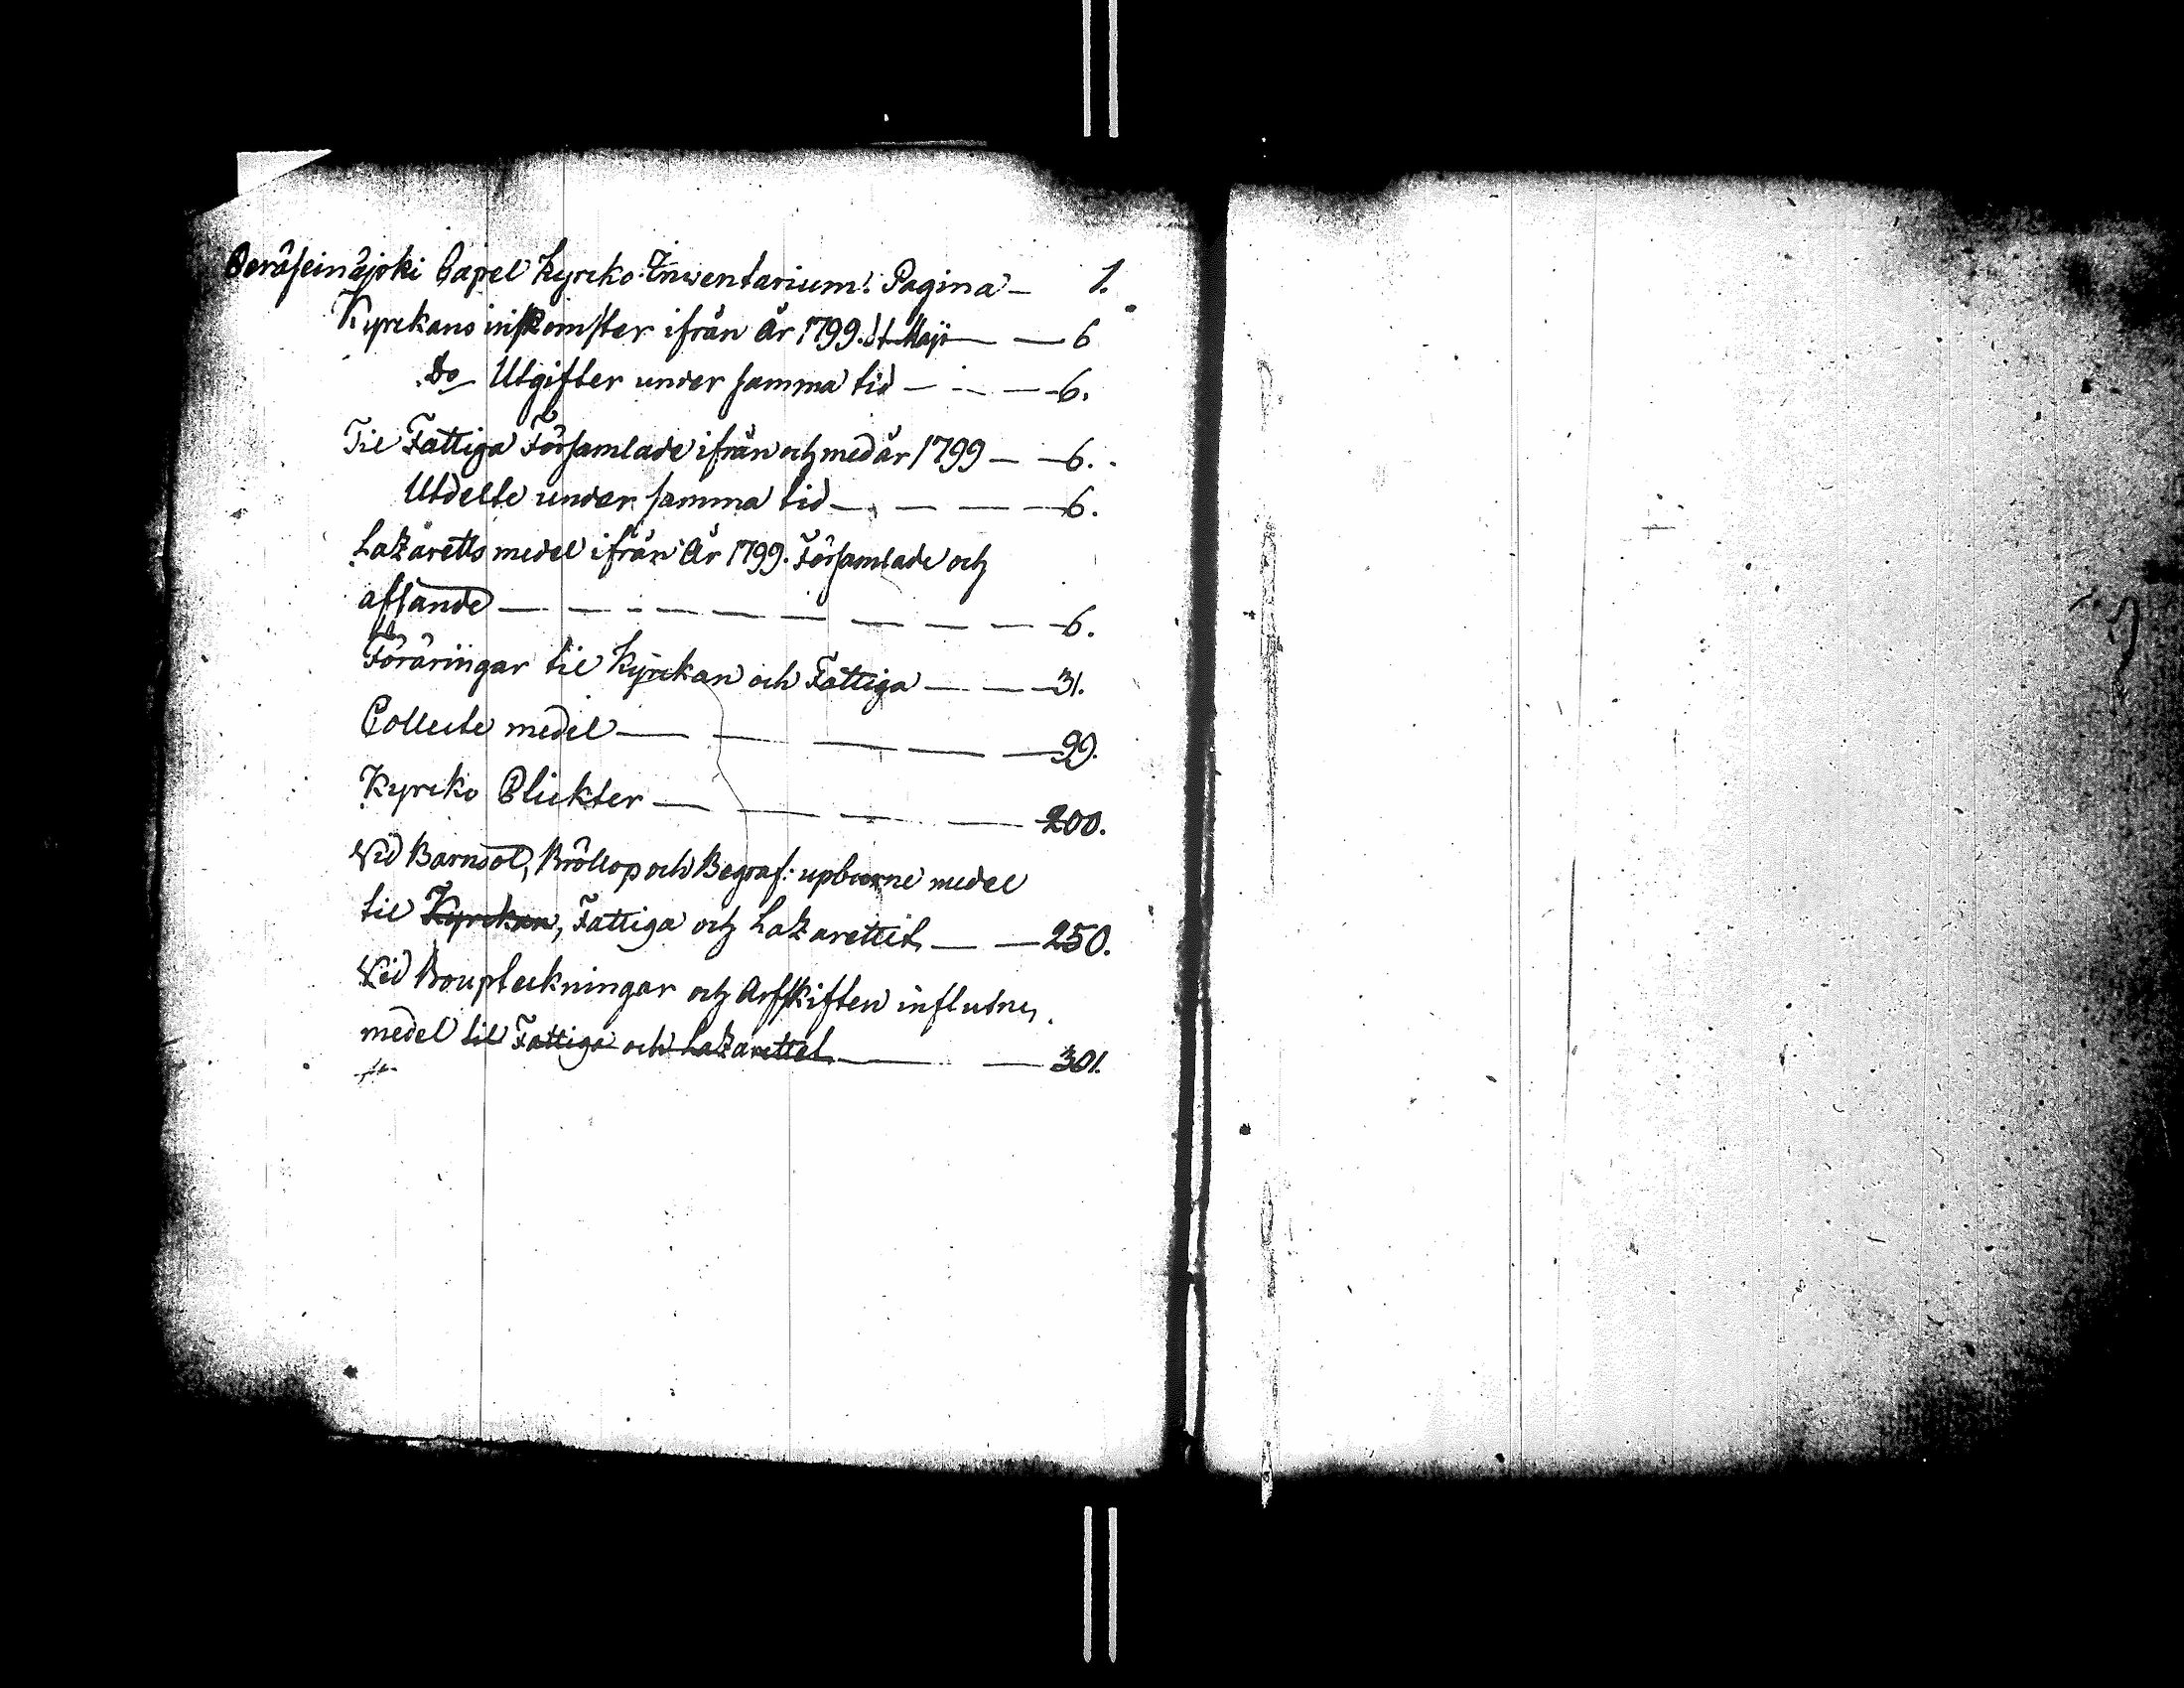 Peräseinäjoki Capel Kyrcko-Inventarium. Pagina — 1.
Kyrckans inkomster ifrån År 1799. 1 Maji — — 6
Do Utgifter under samma tid — — — 6.
Til Fattiga Församlade ifrån och med år 1799 — — 6.
Utdelte under samma tid — — — — 6.
Lazaretts medel ifrån År 1799. Församlade och
afsände — — — — — — — — — 6.
Föräringar til Kyrckan och Fattiga — — — 31.
Collecte medel — — — — — 99.
Kyrcko Plickter — — — — 200.
Vid Barndol, Bröllop och Begraf: upburne medel
til Kyrckan, Fattiga och Lazarettet — — 250.
Vid Boupteckningar och Arfskiften influtne
medel til Fattiga och Lazarettet — — 301.